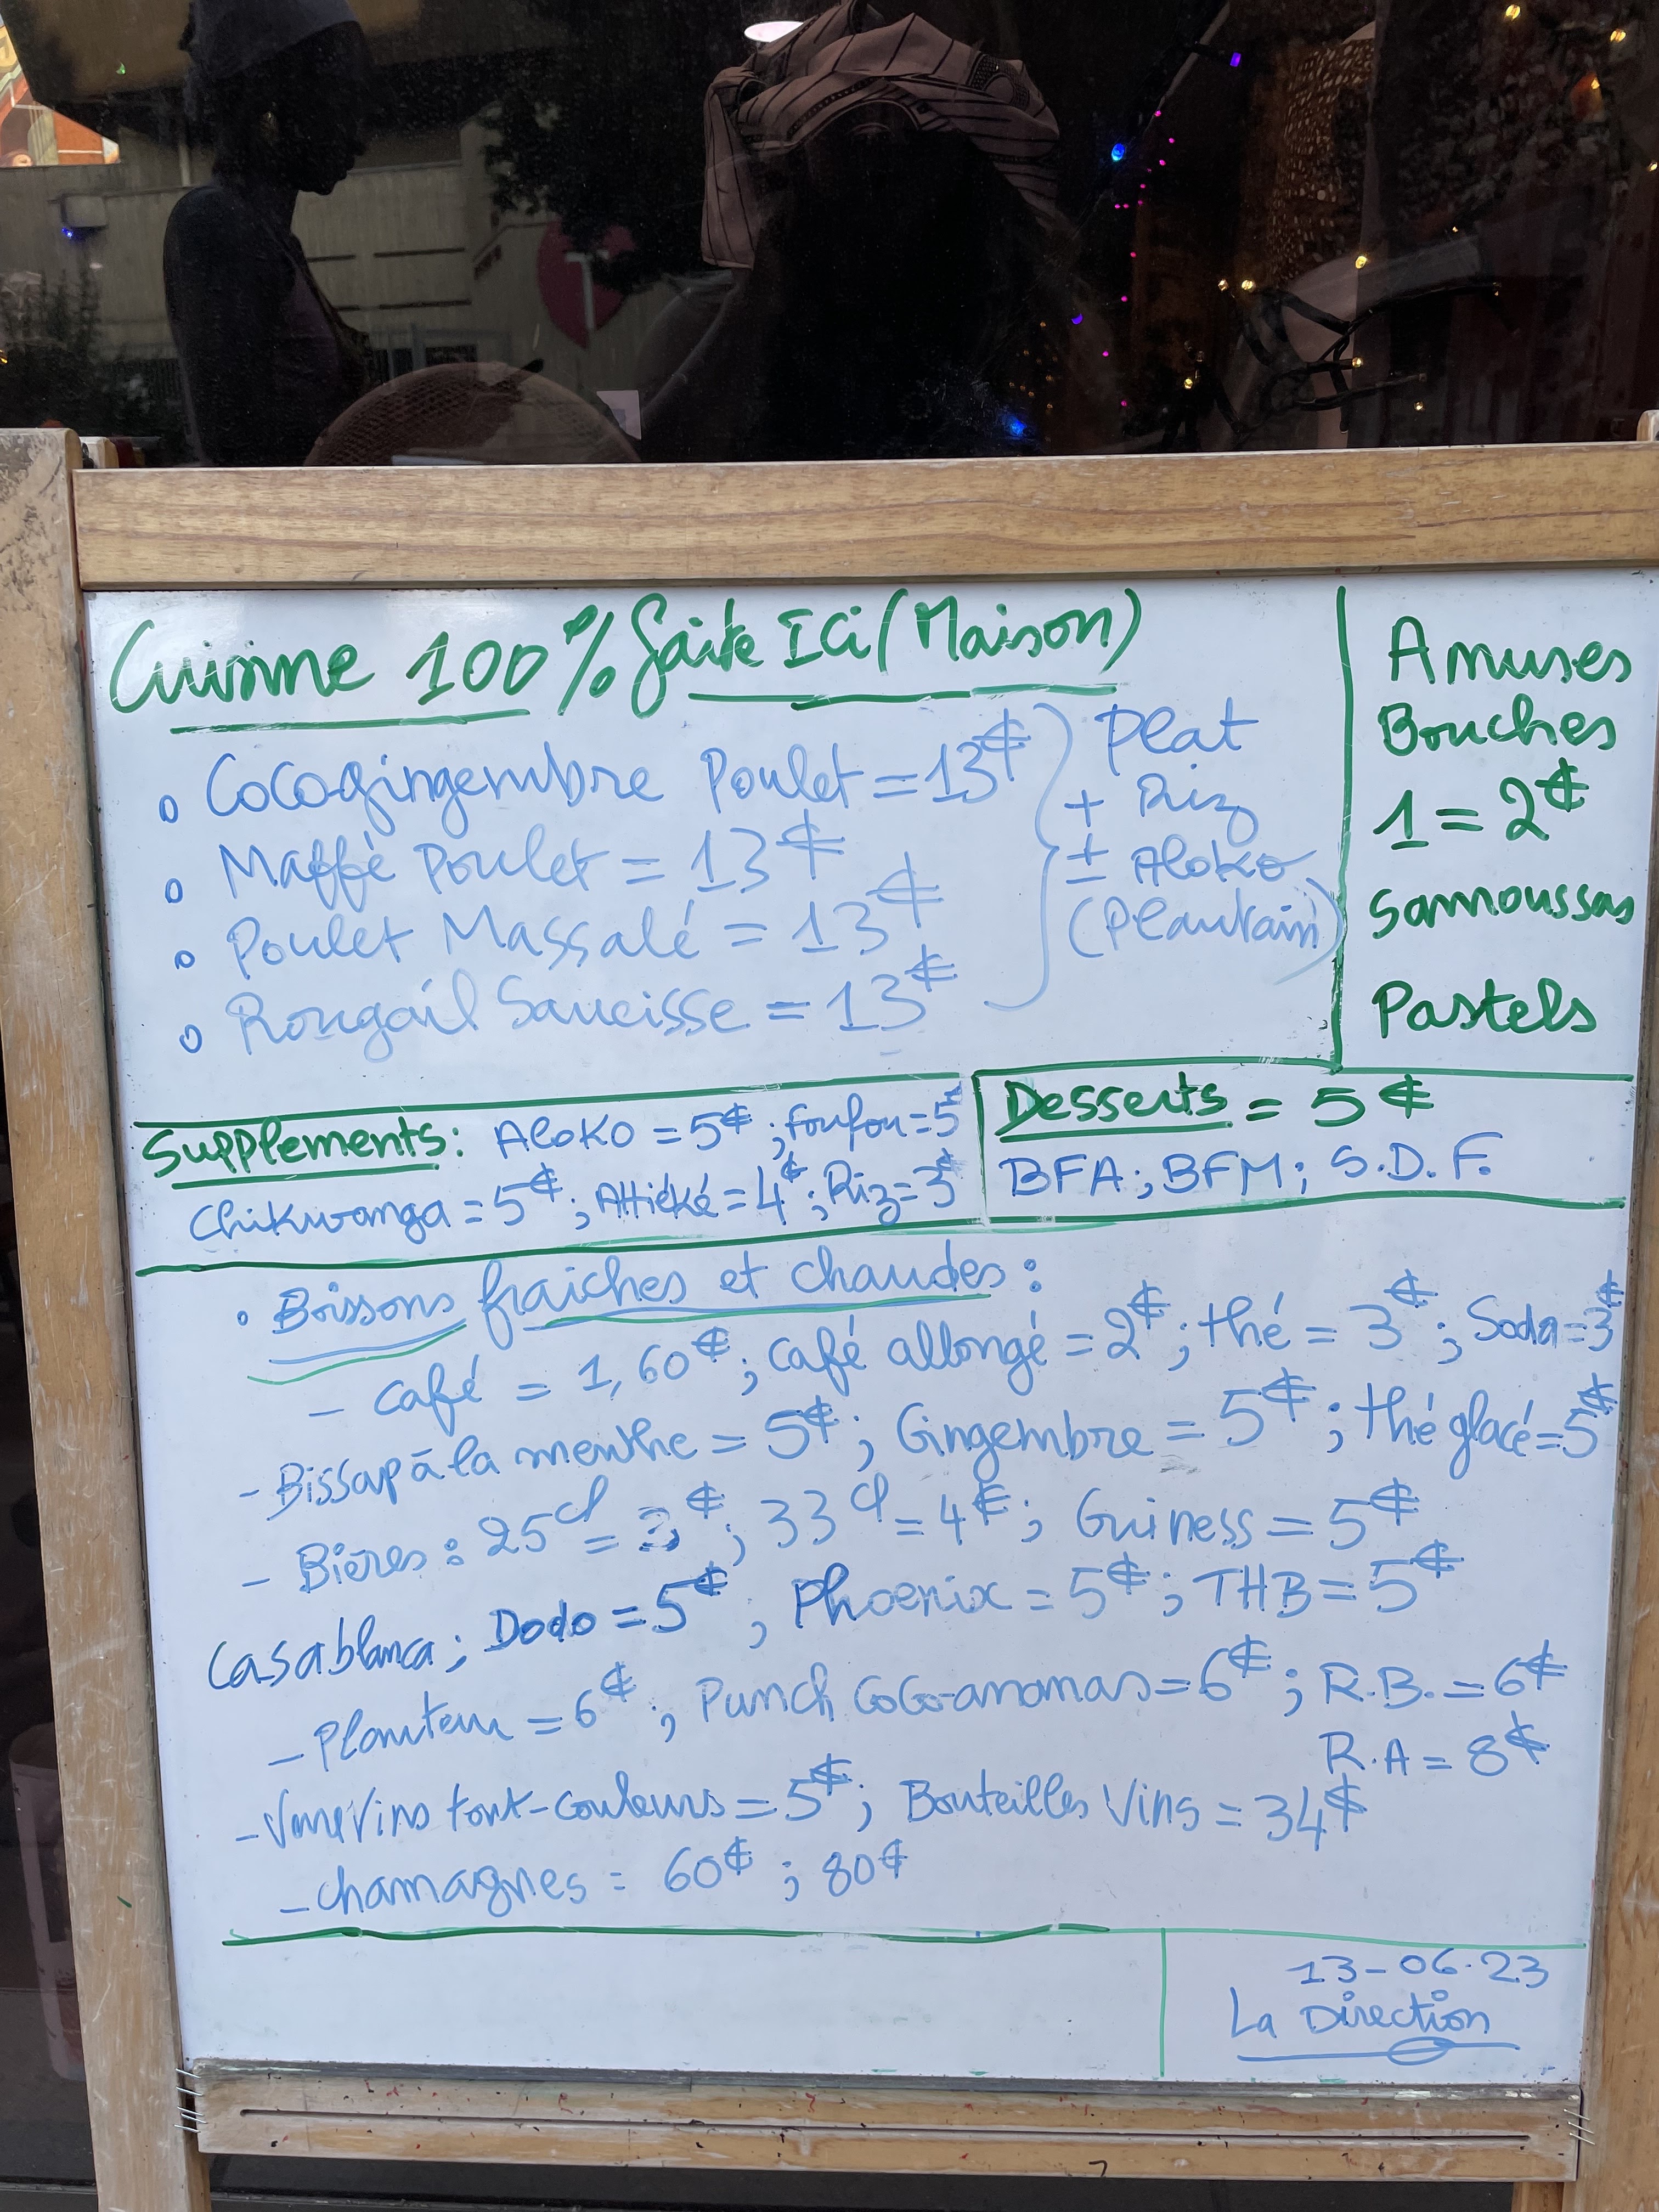 Cuisine 100% faite Ici (Maison)
• Coco-gingembre Poulet = 13€
• Maffé Poulet = 13€
• Poulet Massalé = 13€
• Rougail Saucisse = 13€
Plat
+ Riz
± Aloko
(Plantain)
Amuses
Bouches
1 = 2€
Samoussas
Pastels
Supplements: Aloko = 5€; foufou = 5€
Chikwanga = 5€; Attiéké = 4€; Riz = 3€
Desserts = 5€
BFA; BFM; S.D.F.
• Boissons fraiches et chaudes:
- café = 1,60€; café allongé = 2€; thé = 3€; Soda = 3€
- Bissap à la menthe = 5€; Gingembre = 5€; thé glacé = 5€
- Bières: 25cl = 3€; 33cl = 4€; Guiness = 5€
Casablanca; Dodo = 5€; Phoenix = 5€; THB = 5€
- Planteur = 6€; Punch CoCo-ananas = 6€; R.B. = 6€
R.A = 8€
- Verre Vins tout-couleurs = 5€; Bouteilles Vins = 34€
- chamagnes = 60€; 80€
13-06-23
La Direction